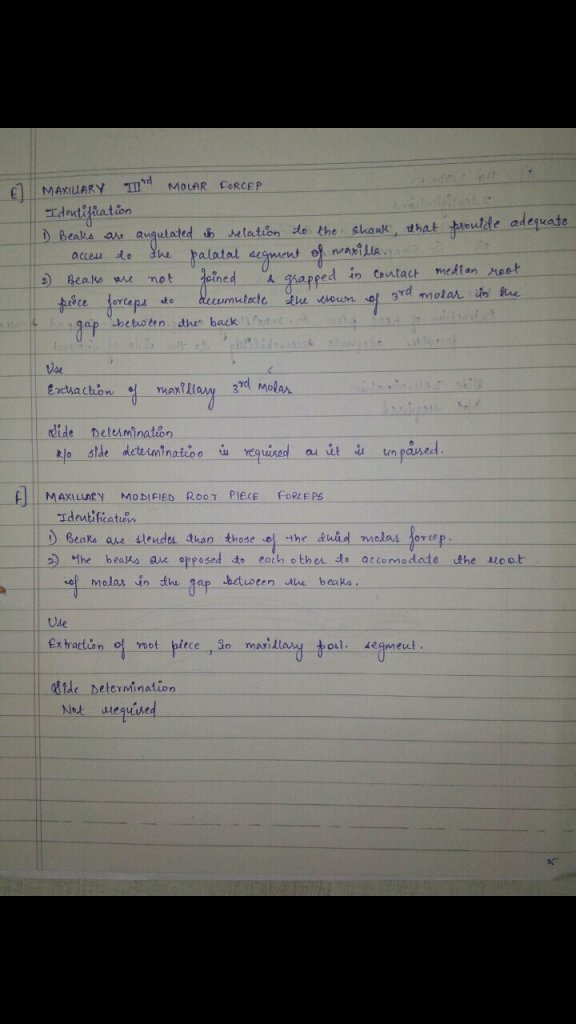 E] MAXILLARY IIIrd MOLAR FORCEP
Identification
1) Beaks are angulated in relation to the shank, that provide adequate
access to the palatal segment of maxilla
2) Beaks are not joined & grapped in contact median root
piece forceps to accumulate the crown of 3rd molar in the
gap between the back
Use
Extraction of maxillary 3rd Molar
Side Determination
No side determination is required as it is unpaired.
F] MAXILLARY MODIFIED ROOT PIECE FORCEPS
Identification
1) Beaks are slender than those of the third molar forcep.
2) The beaks are opposed to each other to accomodate the root
of molar in the gap between the beaks.
Use
Extraction of root piece, in maxillary post. segment.
Side Determination
Not required